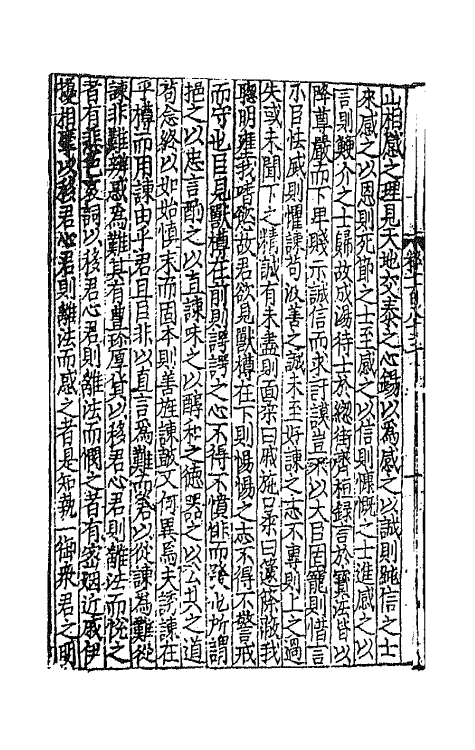 山相感之理見天地交泰之心錫以為感之以誠則純信之士
來感之以恩則死節之士至感之以信則慷慨之士進感之以
言則鯁介之士歸故成湯待士於總街齊桓錄言於寶法皆以
降尊嚴而下卑賤示誠信而求訏謨豈不以大臣固寵則惜言
小臣怯威則懼諫苟改善之誠未至好諫之志不專則上之過
失或未聞下之精誠有未盡則面柔曰戚施口柔曰籧篨敝我
聰明雍我嗜欲故君欲見獸樽在下則惕惕之志不得不警戒
而守也臣見獸樽在前則諤諤之心不得不憤悱而發也所謂
挹之以忠言酌之以直諫味之以醇和之德器之以公共之道
苟念終以如始慎末而固本則善旌諫鼓又何異焉夫謗諫在
乎樽而用諫由乎君且臣非以直言為難而君以從諫為難從
諫非難辨惑為難其有豐珍厚貨以移君心君則離法而悅之
者有悲色哀詞以移君心君則離法而憫之者有密姻近戚伊
優相舉以移君心君則離法而感之者是知執一御眾君之明